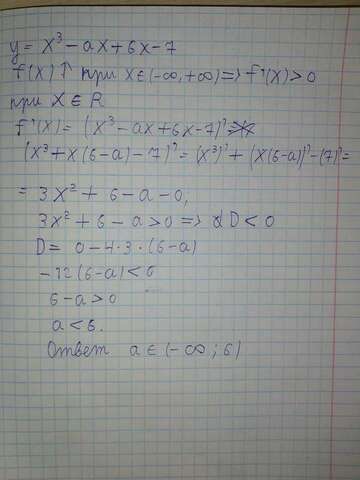 y = x³ - ax + 6x - 7
f(x) ↑ при x∈(-∞, +∞) => f'(x) > 0
при x ∈ R
f'(x) = (x³ - ax + 6x - 7)' =
(x³ + x(6-a) - 7)' = (x³)' + (x(6-a))' - (7)' =
= 3x² + 6 - a - 0;
3x² + 6 - a > 0 => D < 0
D = 0 - 4·3·(6-a)
-12(6-a) < 0
6 - a > 0
a < 6.
Ответ a∈(-∞; 6)